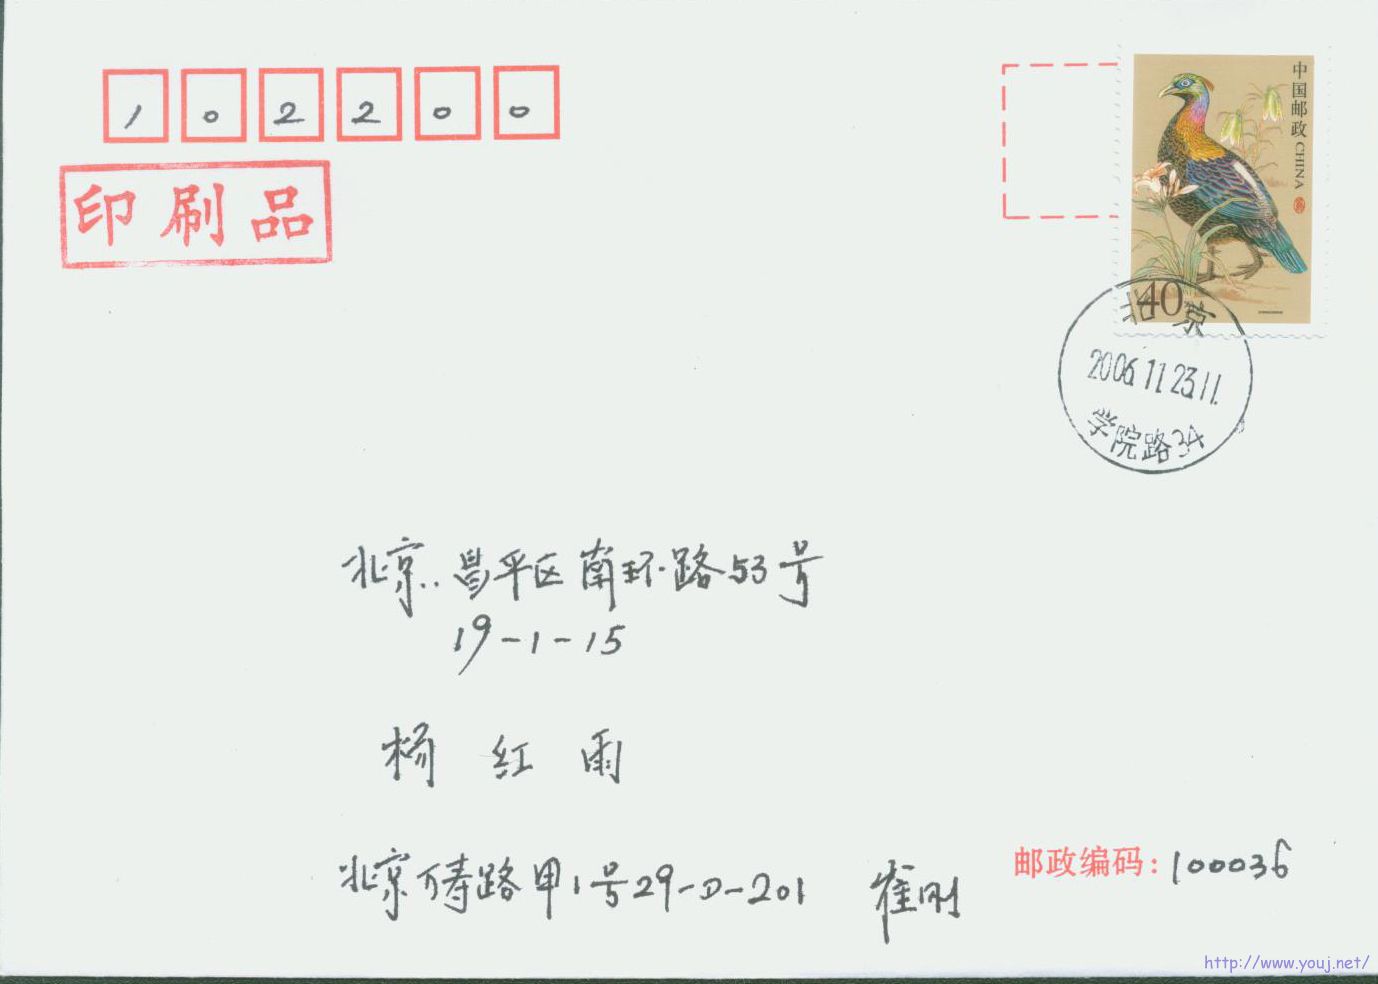 102200
印刷品
中国邮政 CHINA
40
北京
2006.11.23.11.
学院路34
北京..昌平区南环路53号
19-1-15
杨红雨
北京万寿路甲1号29-D-201 崔刚
邮政编码:100036
http://www.youj.net/